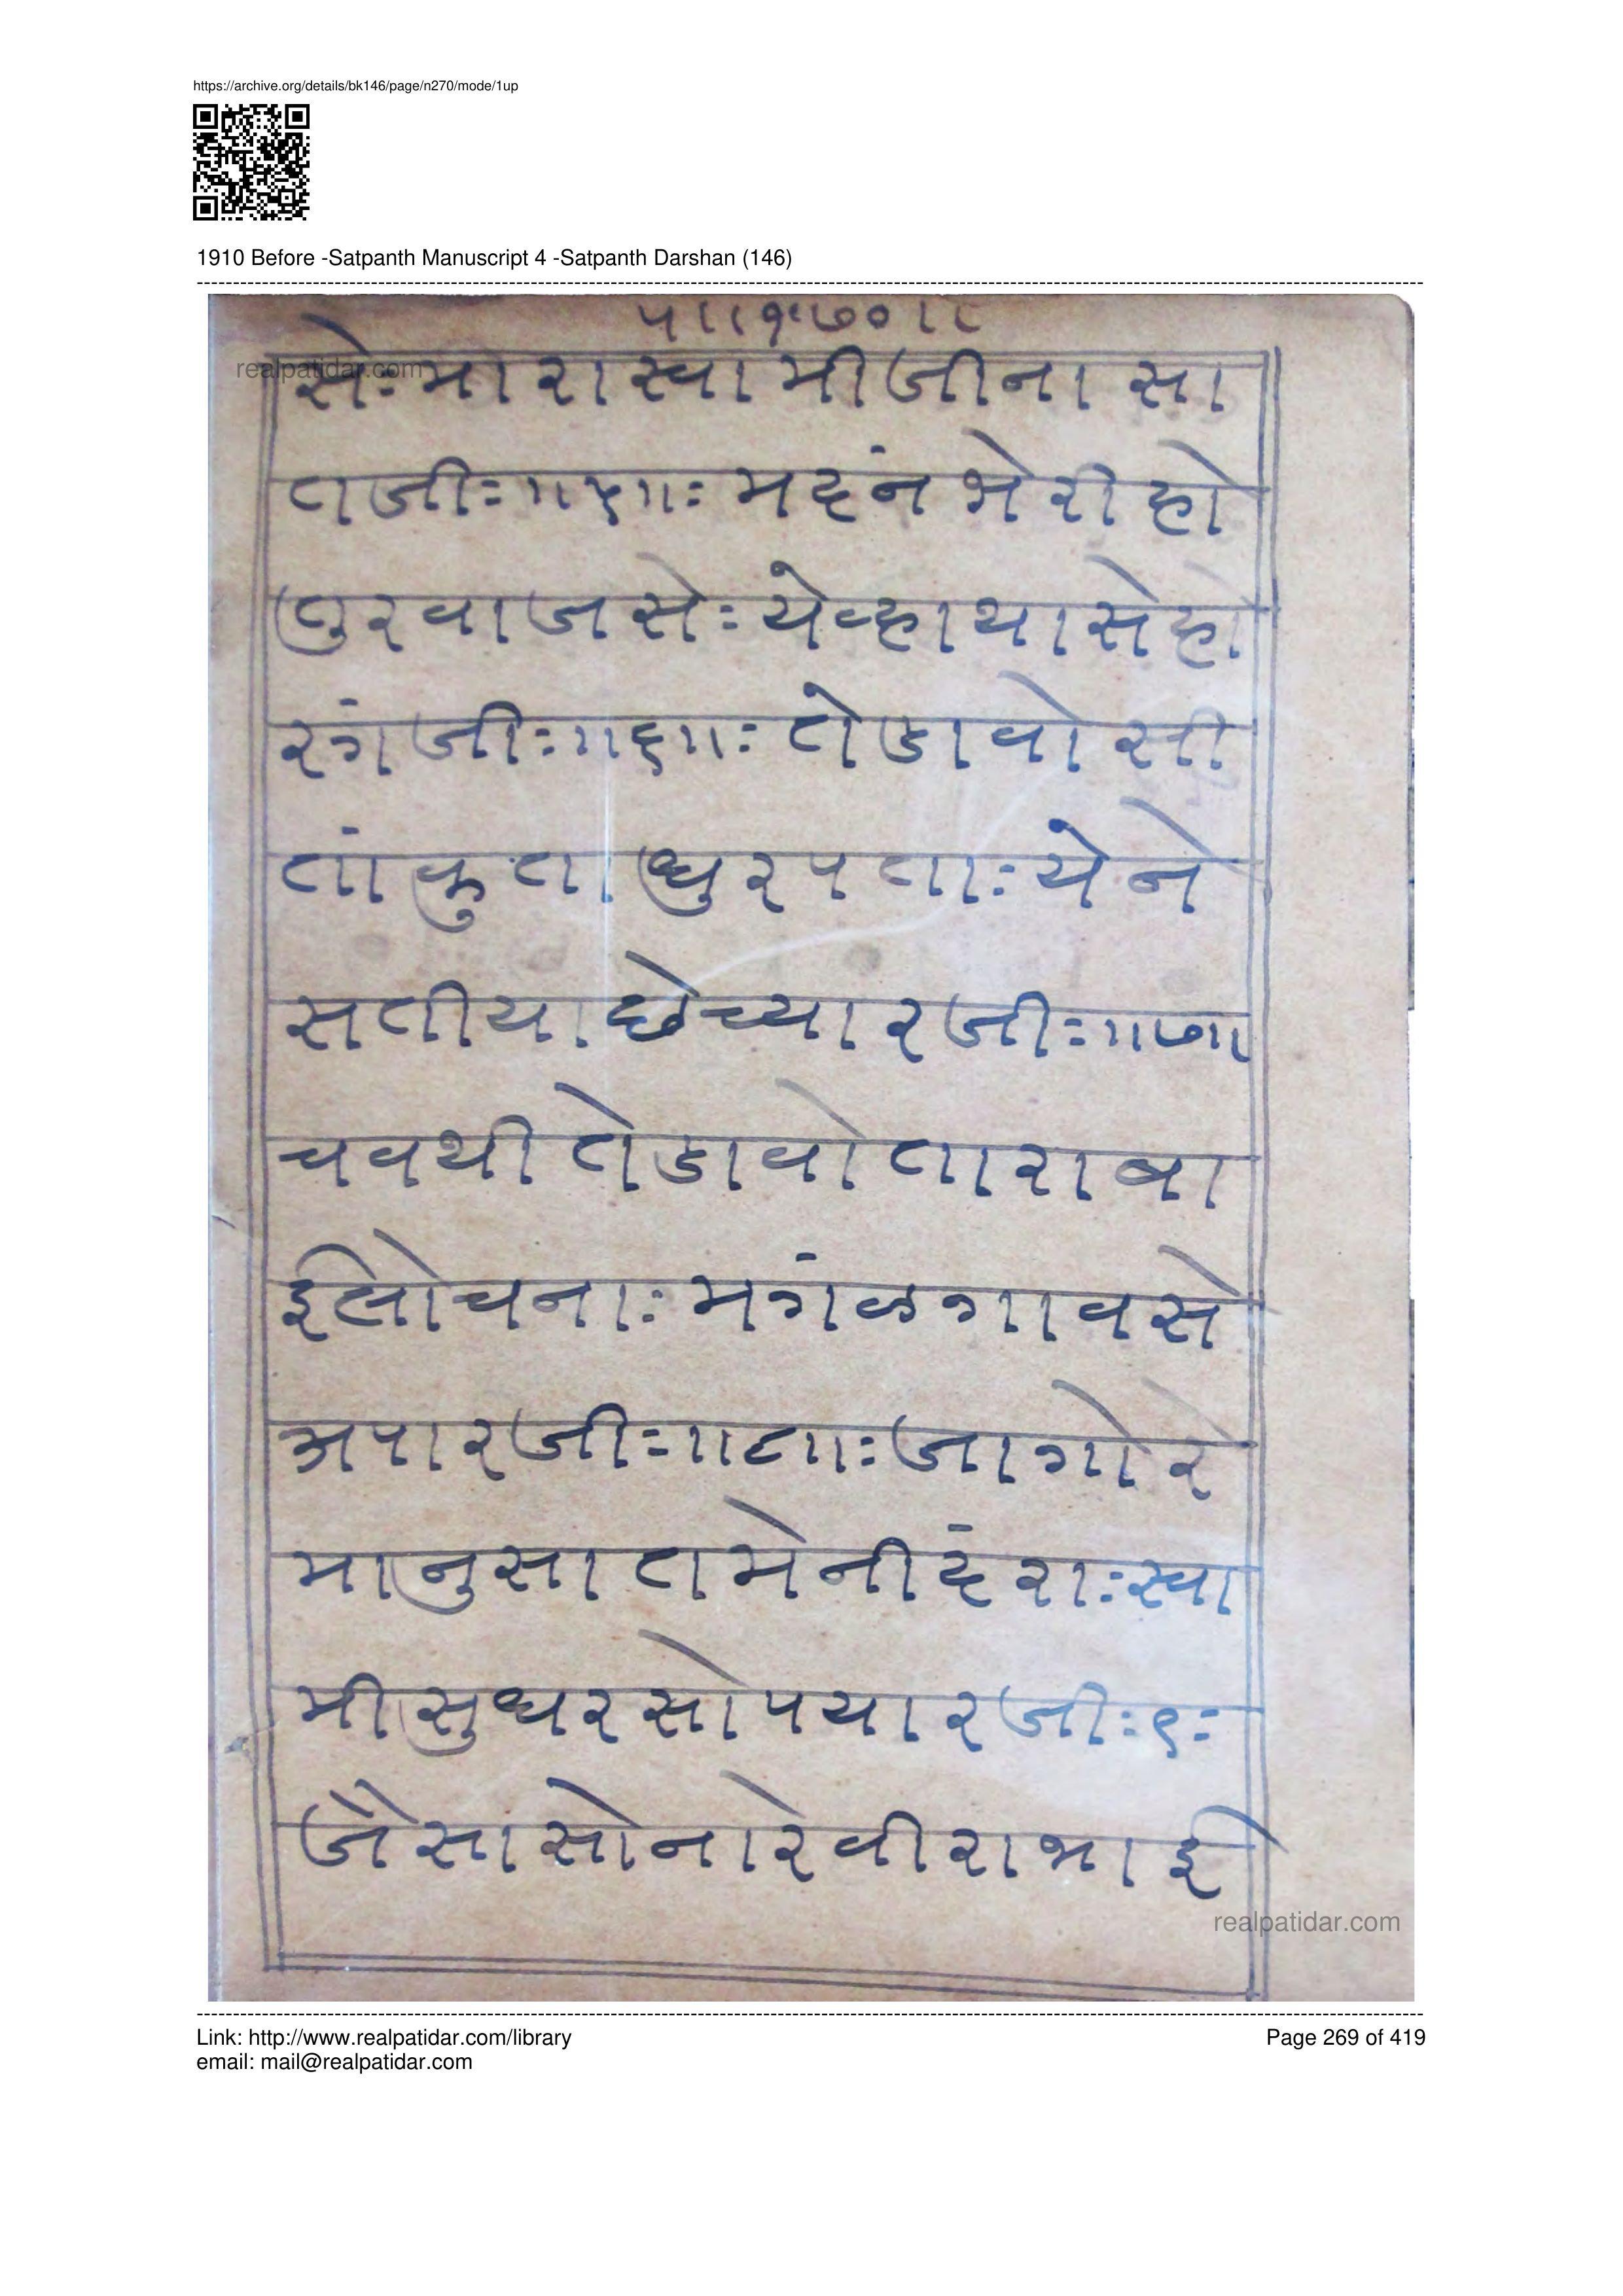 https://archive.org/details/bk146/page/n270/mode/1up
1910 Before -Satpanth Manuscript 4 -Satpanth Darshan (146)
realpatidar.com
सेः मारा स्वामीजीना सा
तजीः ॥५॥ः मदंन भेरी हो
तुरवाजसेः येव्हा था से हो
रगंजीः ॥६॥ः तेडावो सी
तां कुता ध्रुरपताः येने
सतीया छे च्यारजीः ॥७॥
चवथी तेडावो तारा बा
ई लोचनाः मगंळ गावसे
अपारजीः ॥८॥ः जागो रे
मानुसा तमे नीदंराः स्वा
मी सुधरसो पयारजीः ९ः
जैसा सोना रे वीरा भाई
realpatidar.com
Link: http://www.realpatidar.com/library
Page 269 of 419
email: mail@realpatidar.com